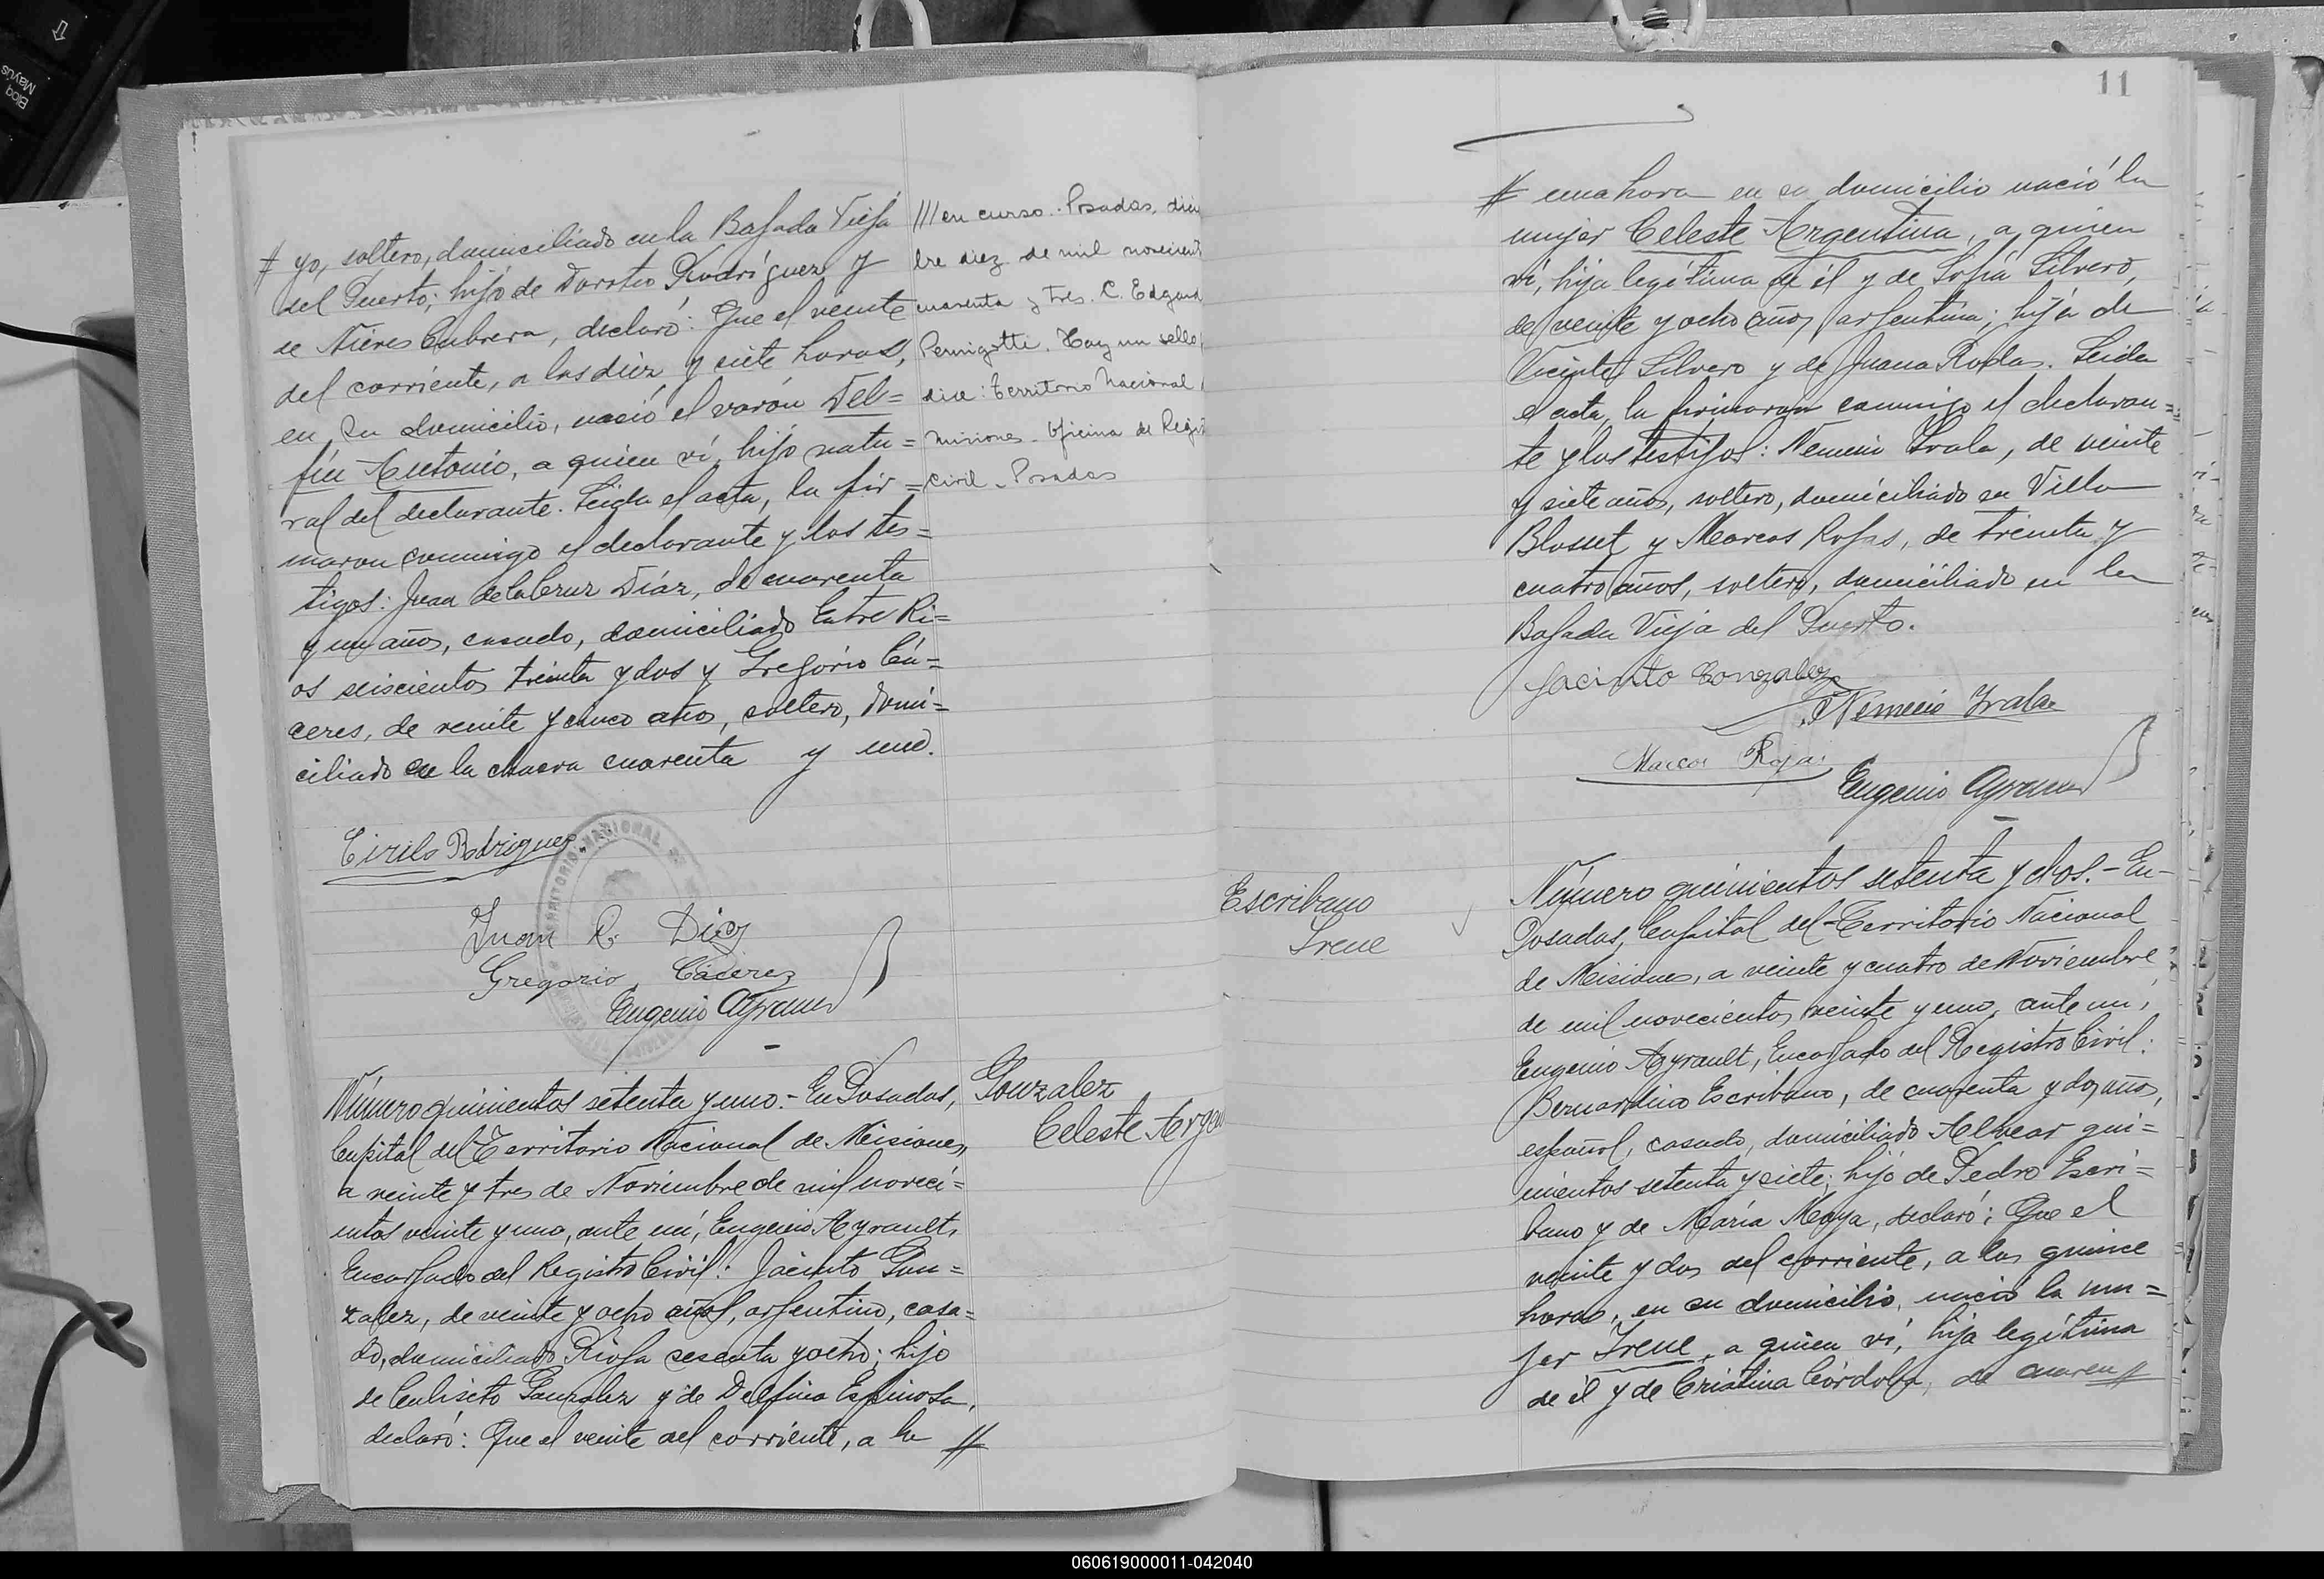 # yo, soltero, domiciliado en la Bajada Vieja
del Puerto; hijo de Doroteo Rodríguez y
de Nieves Cabrera, declaró: Que el veinte
del corriente, a las diez y siete horas,
en su domicilio, nació el varón Del=
fín Antonio, a quien ví, hijo natu=
ral del declarante. Leida el acta, la fir=
maron conmigo el declarante y los tes=
tigos: Juan de la Cruz Díaz, de cuarenta
y un años, casado, domiciliado Entre Ri=
os seiscientos treinta y dos y Gregorio Cá=
ceres, de veinte y cinco años, soltero, domi=
ciliado en la chacra cuarenta y uno.
/// en curso.- Posadas, diciem
bre diez de mil novecient
cuarenta y tres. C. Edgard
Pernigotti. Hay un sello
dice: Territorio Nacional
Misiones - Oficina de Regis
Civil - Posadas
Cirilo Rodriguez
Juan C. Diaz
Gregorio Cáceres
Eugenio Ayrault
Número quinientos setenta y uno.- En Posadas,
Capital del Territorio Nacional de Misiones,
a veinte y tres de Noviembre de mil noveci=
entos veinte y uno, ante mí, Eugenio Ayrault,
Encargado del Registro Civil: Jacinto Gon=
zalez, de veinte y ocho años, argentino, casa=
do, domiciliado Rioja sesenta y ocho; hijo
de Calisto Gonzalez y de Delfina Espinosa,
declaró: Que el veinte del corriente, a la #
Gonzalez
Celeste Argen
11
# una hora en su domicilio nació la
mujer Celeste Argentina, a quien
ví, hija legítima de él y de Sofía Silvero,
de veinte y ocho años, argentina; hija de
Vicente Silvero y de Juana Rodas. Leida
el acta, la firmaron conmigo el declaran=
te y los testigos: Nemecio Irala, de veinte
y siete años, soltero, domiciliado en Villa
Blosset y Marcos Rojas, de treinta y
cuatro años, soltero, domiciliado en la
Bajada Vieja del Puerto.
Jacinto Gonzalez
Nemecio Irala
Marcos Rojas
Eugenio Ayrault
Escribano
Irene
Número quinientos setenta y dos.- En
Posadas, Capital del Territorio Nacional
de Misiones, a veinte y cuatro de Noviembre
de mil novecientos veinte y uno, ante mí,
Eugenio Ayrault, Encargado del Registro Civil:
Bernardino Escribano, de cuarenta y dos años,
español, casado, domiciliado Alvear qui=
nientos setenta y siete; hijo de Pedro Escri=
bano y de María Moya, declaró: Que el
veinte y dos del corriente, a las quince
horas, en su domicilio, nació la mu=
jer Irene, a quien ví, hija legítima
de él y de Cristina Córdoba, de cuaren #
060619000011-042040